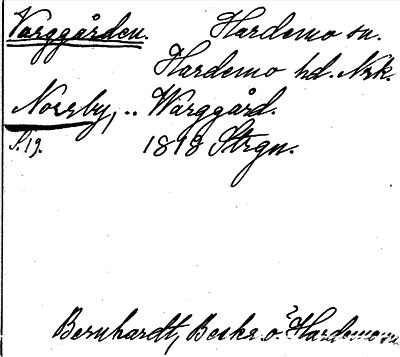 Varggården. Hardemo sn.
Hardemo hd. Nrk.
Norrby, .. Warggård.
S. 19. 1818 Strgn.
Bernhardt, Beskr. o. Hardemo sn